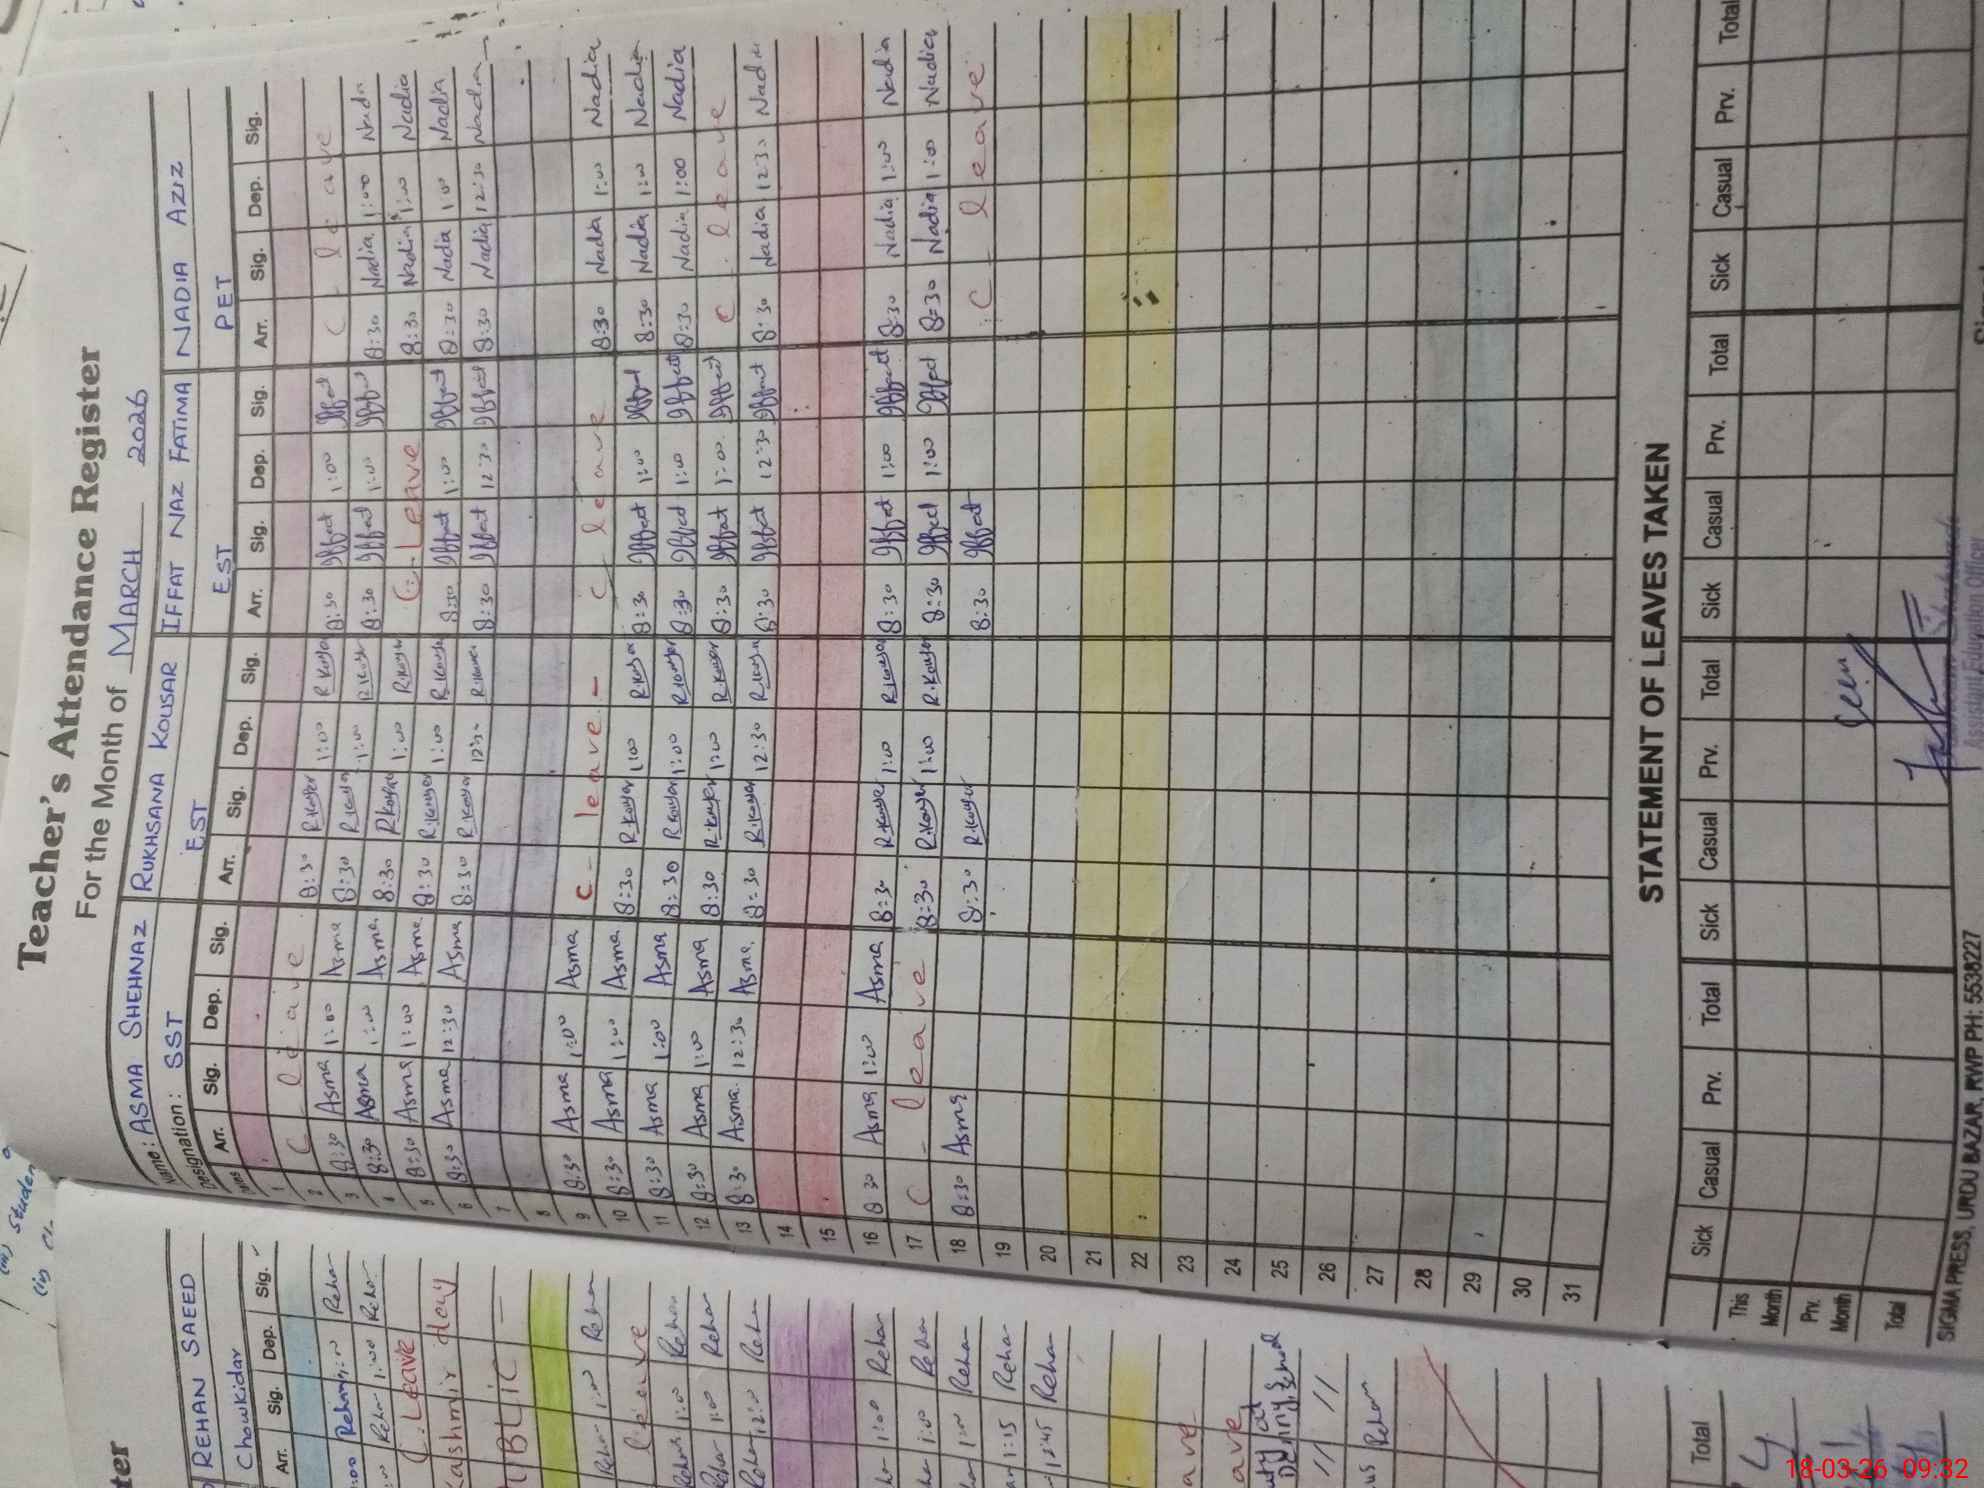 Teacher's Attendance Register
For the Month of MARCH 2026
Name: ASMA SHEHNAZ RUKHSANA KOUSAR IFFAT NAZ FATIMA NADIA AZIZ
Designation: SST EST EST PET
Dates Arr. Sig. Dep. Sig. Arr. Sig. Dep. Sig. Arr. Sig. Dep. Sig. Arr. Sig. Dep. Sig.
1
2 C - leave 8:30 R.Kousar 1:00 R.Kousar 8:30 Iffat 1:00 Iffat C - leave
3 8:30 Asma 1:00 Asma 8:30 R.Kousar 1:00 R.Kousar 8:30 Iffat 1:00 Iffat 8:30 Nadia 1:00 Nadia
4 8:30 Asma 1:00 Asma 8:30 R.Kousar 1:00 R.Kousar C. Leave 8:30 Nadia 1:00 Nadia
5 8:30 Asma 1:00 Asma 8:30 R.Kousar 1:00 R.Kousar 8:30 Iffat 1:00 Iffat 8:30 Nadia 1:00 Nadia
6 8:30 Asma 12:30 Asma 8:30 R.Kousar 12:30 R.Kousar 8:30 Iffat 12:30 Iffat 8:30 Nadia 12:30 Nadia
7
8
9 8:30 Asma 1:00 Asma C - leave - C leave 8:30 Nadia 1:00 Nadia
10 8:30 Asma 1:00 Asma 8:30 R.Kousar 1:00 R.Kousar 8:30 Iffat 1:00 Iffat 8:30 Nadia 1:00 Nadia
11 8:30 Asma 1:00 Asma 8:30 R.Kousar 1:00 R.Kousar 8:30 Iffat 1:00 Iffat 8:30 Nadia 1:00 Nadia
12 8:30 Asma 1:00 Asma 8:30 R.Kousar 1:00 R.Kousar 8:30 Iffat 1:00 Iffat C. leave
13 8:30 Asma 12:30 Asma 8:30 R.Kousar 12:30 R.Kousar 8:30 Iffat 12:30 Iffat 8:30 Nadia 12:30 Nadia
14
15
16 8:30 Asma 1:00 Asma 8:30 R.Kousar 1:00 R.Kousar 8:30 Iffat 1:00 Iffat 8:30 Nadia 1:00 Nadia
17 C - leave 8:30 R.Kousar 1:00 R.Kousar 8:30 Iffat 1:00 Iffat 8:30 Nadia 1:00 Nadia
18 8:30 Asma 8:30 R.Kousar 8:30 Iffat C - leave
19
20
21
22
23
24
25
26
27
28
29
30
31
STATEMENT OF LEAVES TAKEN
Sick Casual Prv. Total Sick Casual Prv. Total Sick Casual Prv. Total Sick Casual Prv. Total
This Month
Prv. Month
Total
Seen
Assistant Education Officer
SIGMA PRESS, URDU BAZAR, RWP PH: 5538227
REHAN SAEED
Chowkidar
Arr. Sig. Dep. Sig.
Rehan 1:00 Rehan
Rehan 1:00 Rehan
C. Leave
Kashmir day
Rehan 1:00 Rehan
leave
Rehan 1:00 Rehan
Rehan 1:00 Rehan
Rehan 12:00 Rehan
1:00 Rehan
1:00 Rehan
1:00 Rehan
1:15 Rehan
12:45 Rehan
Rehan
Total
18-03-26 09:32